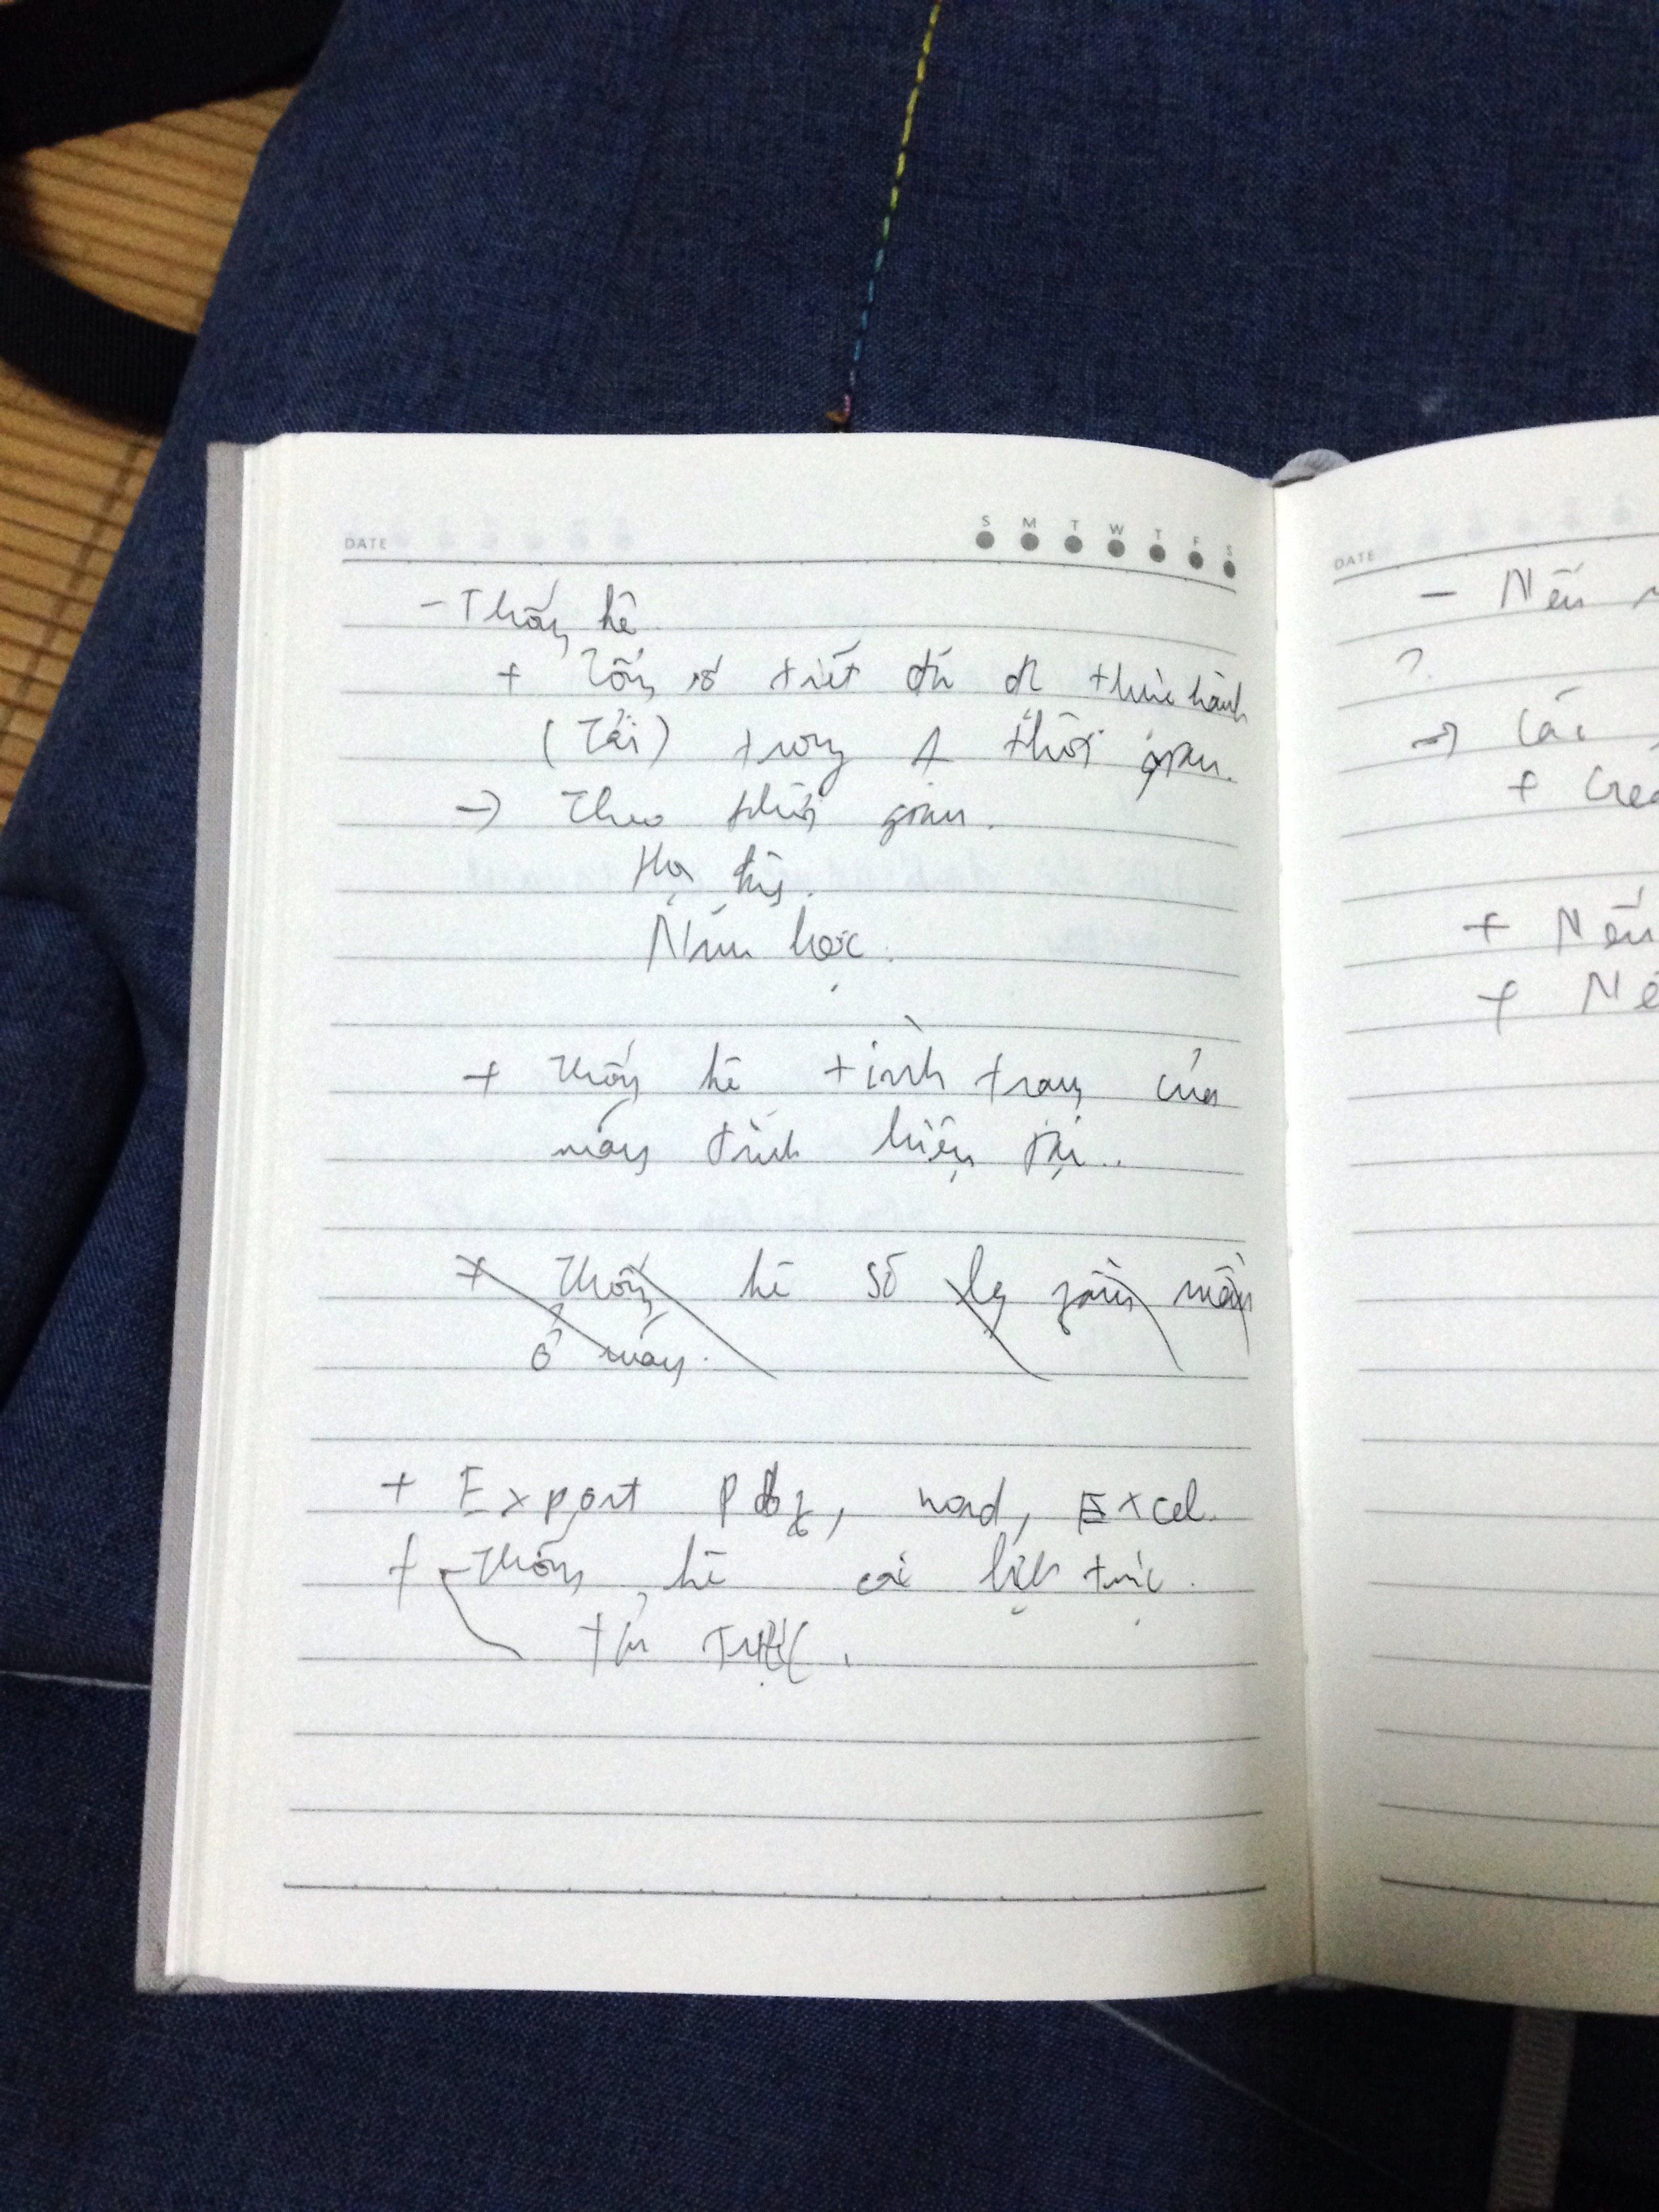 DATE S M T W T F S
- Thống kê
+ Tổng số tiết đã đk thực hành
(Tải) trong 1 thời gian.
→ Theo thời gian.
Học kỳ.
Năm học.
+ Thống kê tình trạng của
máy tính hiện tại..
+ Thống kê số lg phần mềm
ở máy.
+ Export Pdf, word, Excel.
+ Thống kê các lịch trực.
DATE
- Nếu
?
→ Các
+ Crea
+ Nếu
+ Nế